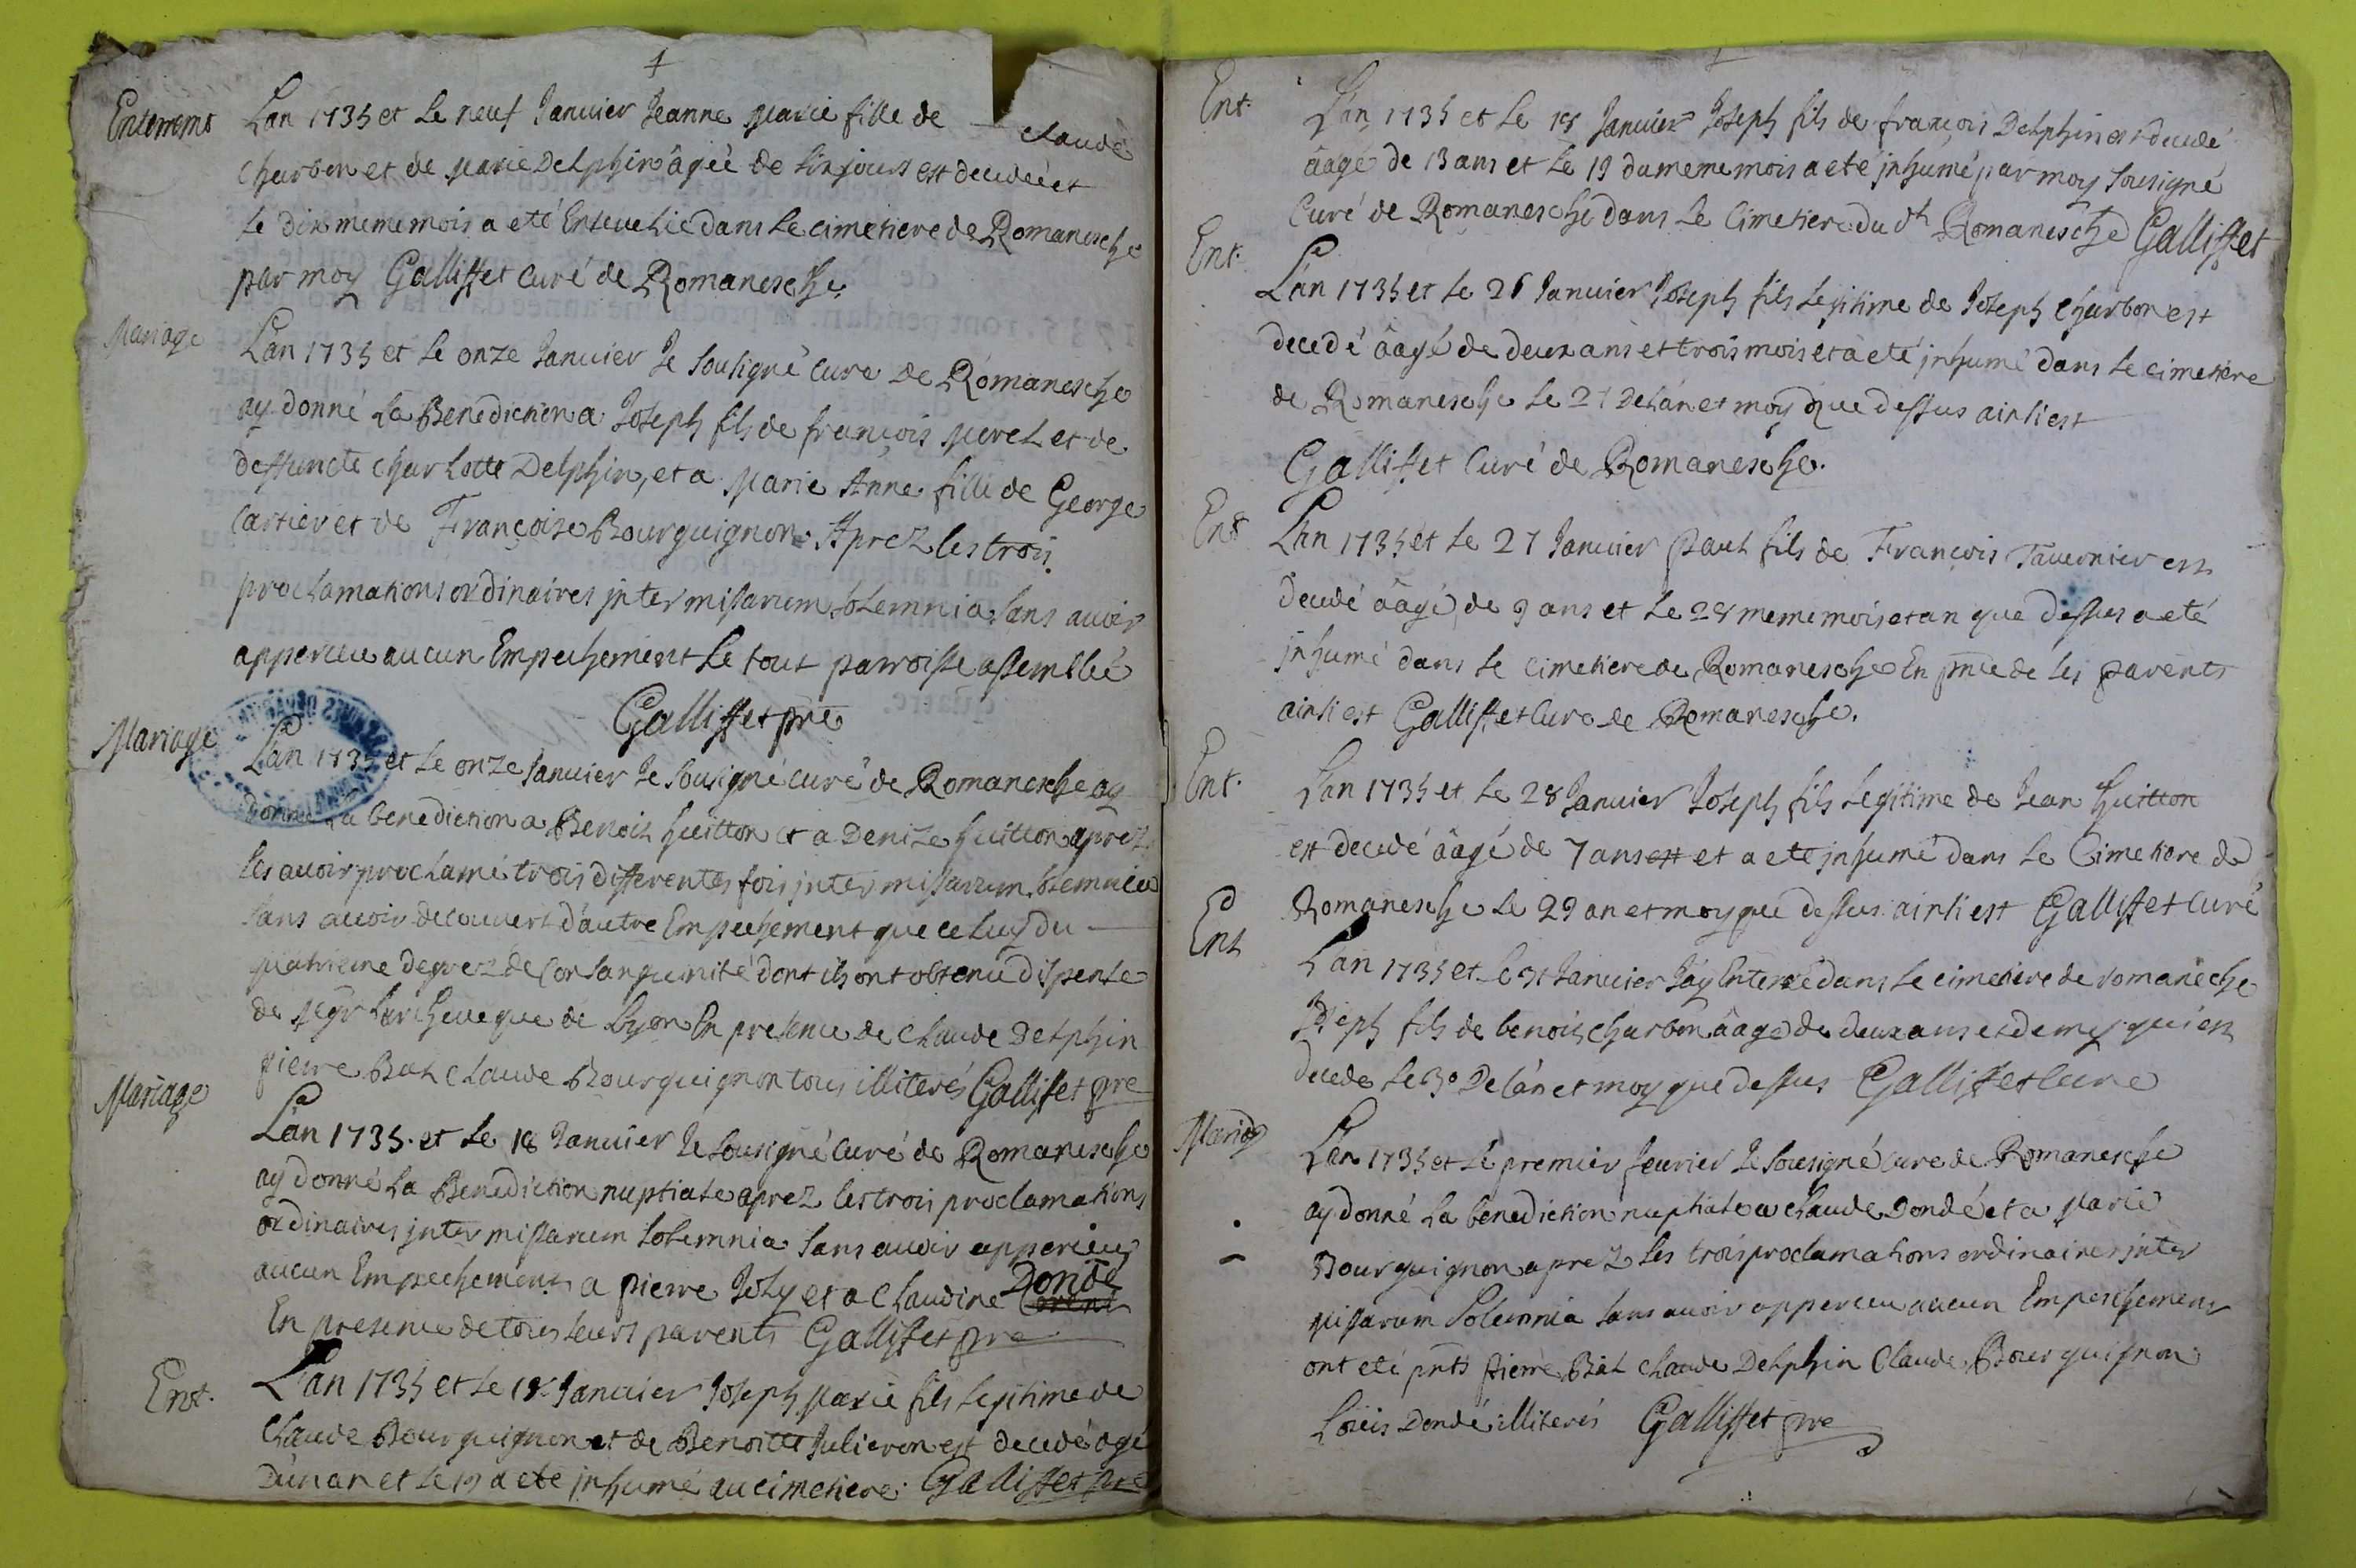 Enterremt
Lan 1735 et le neuf Janvier Jeanne Marie fille de Claude
Charbon et de Marie Delphin âgée de six jours est decedée et
le dix meme mois a eté Ensevelie dans le cimetiere de Romanesche
par moy Galliffet curé de Romanesche
Mariage
Lan 1735 et le onze Janvier Je sousigné curé de Romanesche
ay donné la Benediction a Joseph fils de françois Morel et de
deffuncte Charlotte Delphin, et a Marie Anne fille de George
Cartier et de Françoise Bourguignon Aprez les trois
proclamations ordinaires jnter missarum solemnia sans avoir
apperceu aucun Empechement le tout parroisse assemblée
Galliffet pre
Mariage
Lan 1735 et le onze Janvier Je sousigné curé de Romanesche ay
donné la benediction a Benoit Guitton et a Denize Guitton aprez
les avoir proclamé trois differentes fois jnter missarum solemnia
sans avoir decouvert d'autre Empechement que celuy du
quatrieme degrez de Consanguinité dont ils ont obtenu dispense
de Mgr Larcheveque de Lyon En presence de Claude Delphin
pierre Bal Claude Bourguignon tous illiterés Galliffet pre
Mariage
Lan 1735. et le 18 Janvier Je sousigné curé de Romanesche
ay donné la Benediction nuptiale aprez les trois proclamations
ordinaires jnter missarum solemnia sans avoir apperceu
aucun Empechement a pierre Joly et a Claudine Dondé
En presence de tous leurs parents Galliffet pre
Ent.
L'an 1735 et le 18 Janvier Joseph Marie fils legitime de
Claude Bourguignon et de Benoitte Julieron est decedé agé
D'un an et le 19 a eté jnhumé au cimetiere. Galliffet pre
Ent.
L'an 1735 et le 18 Janvier Joseph fils de françois Delphin est decedé
âagé de 13 ans et le 19 du meme mois a eté jnhumé par moy sousigné
Curé de Romanesche dans le Cimetiere du dt Romanesche Galliffet
Ent.
L'an 1735 et le 26 Janvier Joseph fils legitime de Joseph Charbon est
decedé âagé de deux ans et trois mois et a eté jnhumé dans le cimetiere
de Romanesche le 27 de lan et moy que dessus ainsi est
Galliffet Curé de Romanesche.
Ent
L'an 1735 et le 27 Janvier Paul fils de François Tavernier est
decedé âagé de 9 ans et le 28 meme mois et an que dessus a eté
jnhumé dans le cimetiere de Romanesche En pnce de ses parents
ainsi est Galliffet Cure de Romanesche.
Ent.
L'an 1735 et le 28 Janvier Joseph fils legitime de Jean Guitton
est decedé âagé de 7 ans et a eté jnhumé dans le Cimetiere de
Romanesche le 29 an et moy que dessus ainsi est Galliffet Curé
Ent
L'an 1735 et le 31 Janvier J'ay Enterré dans le cimetiere de romaneche
Joseph fils de benoit Charbon âagé de deux ans et demy qui est
decedé le 30 de l'an et moy que dessus Galliffet Cure
Mariag
L'an 1735 et le premier fevrier Je sousigné curé de Romanesche
ay donné la benediction nuptiale a Claude Dondé et a Marie
Bourguignon aprez les trois proclamations ordinaires jnter
missarum Solemnia sans avoir apperceu aucun Empeschement
ont eté pnts pierre Bal Claude Delphin Claude Bourguignon
Loüis Dondé illiterés Galliffet pre